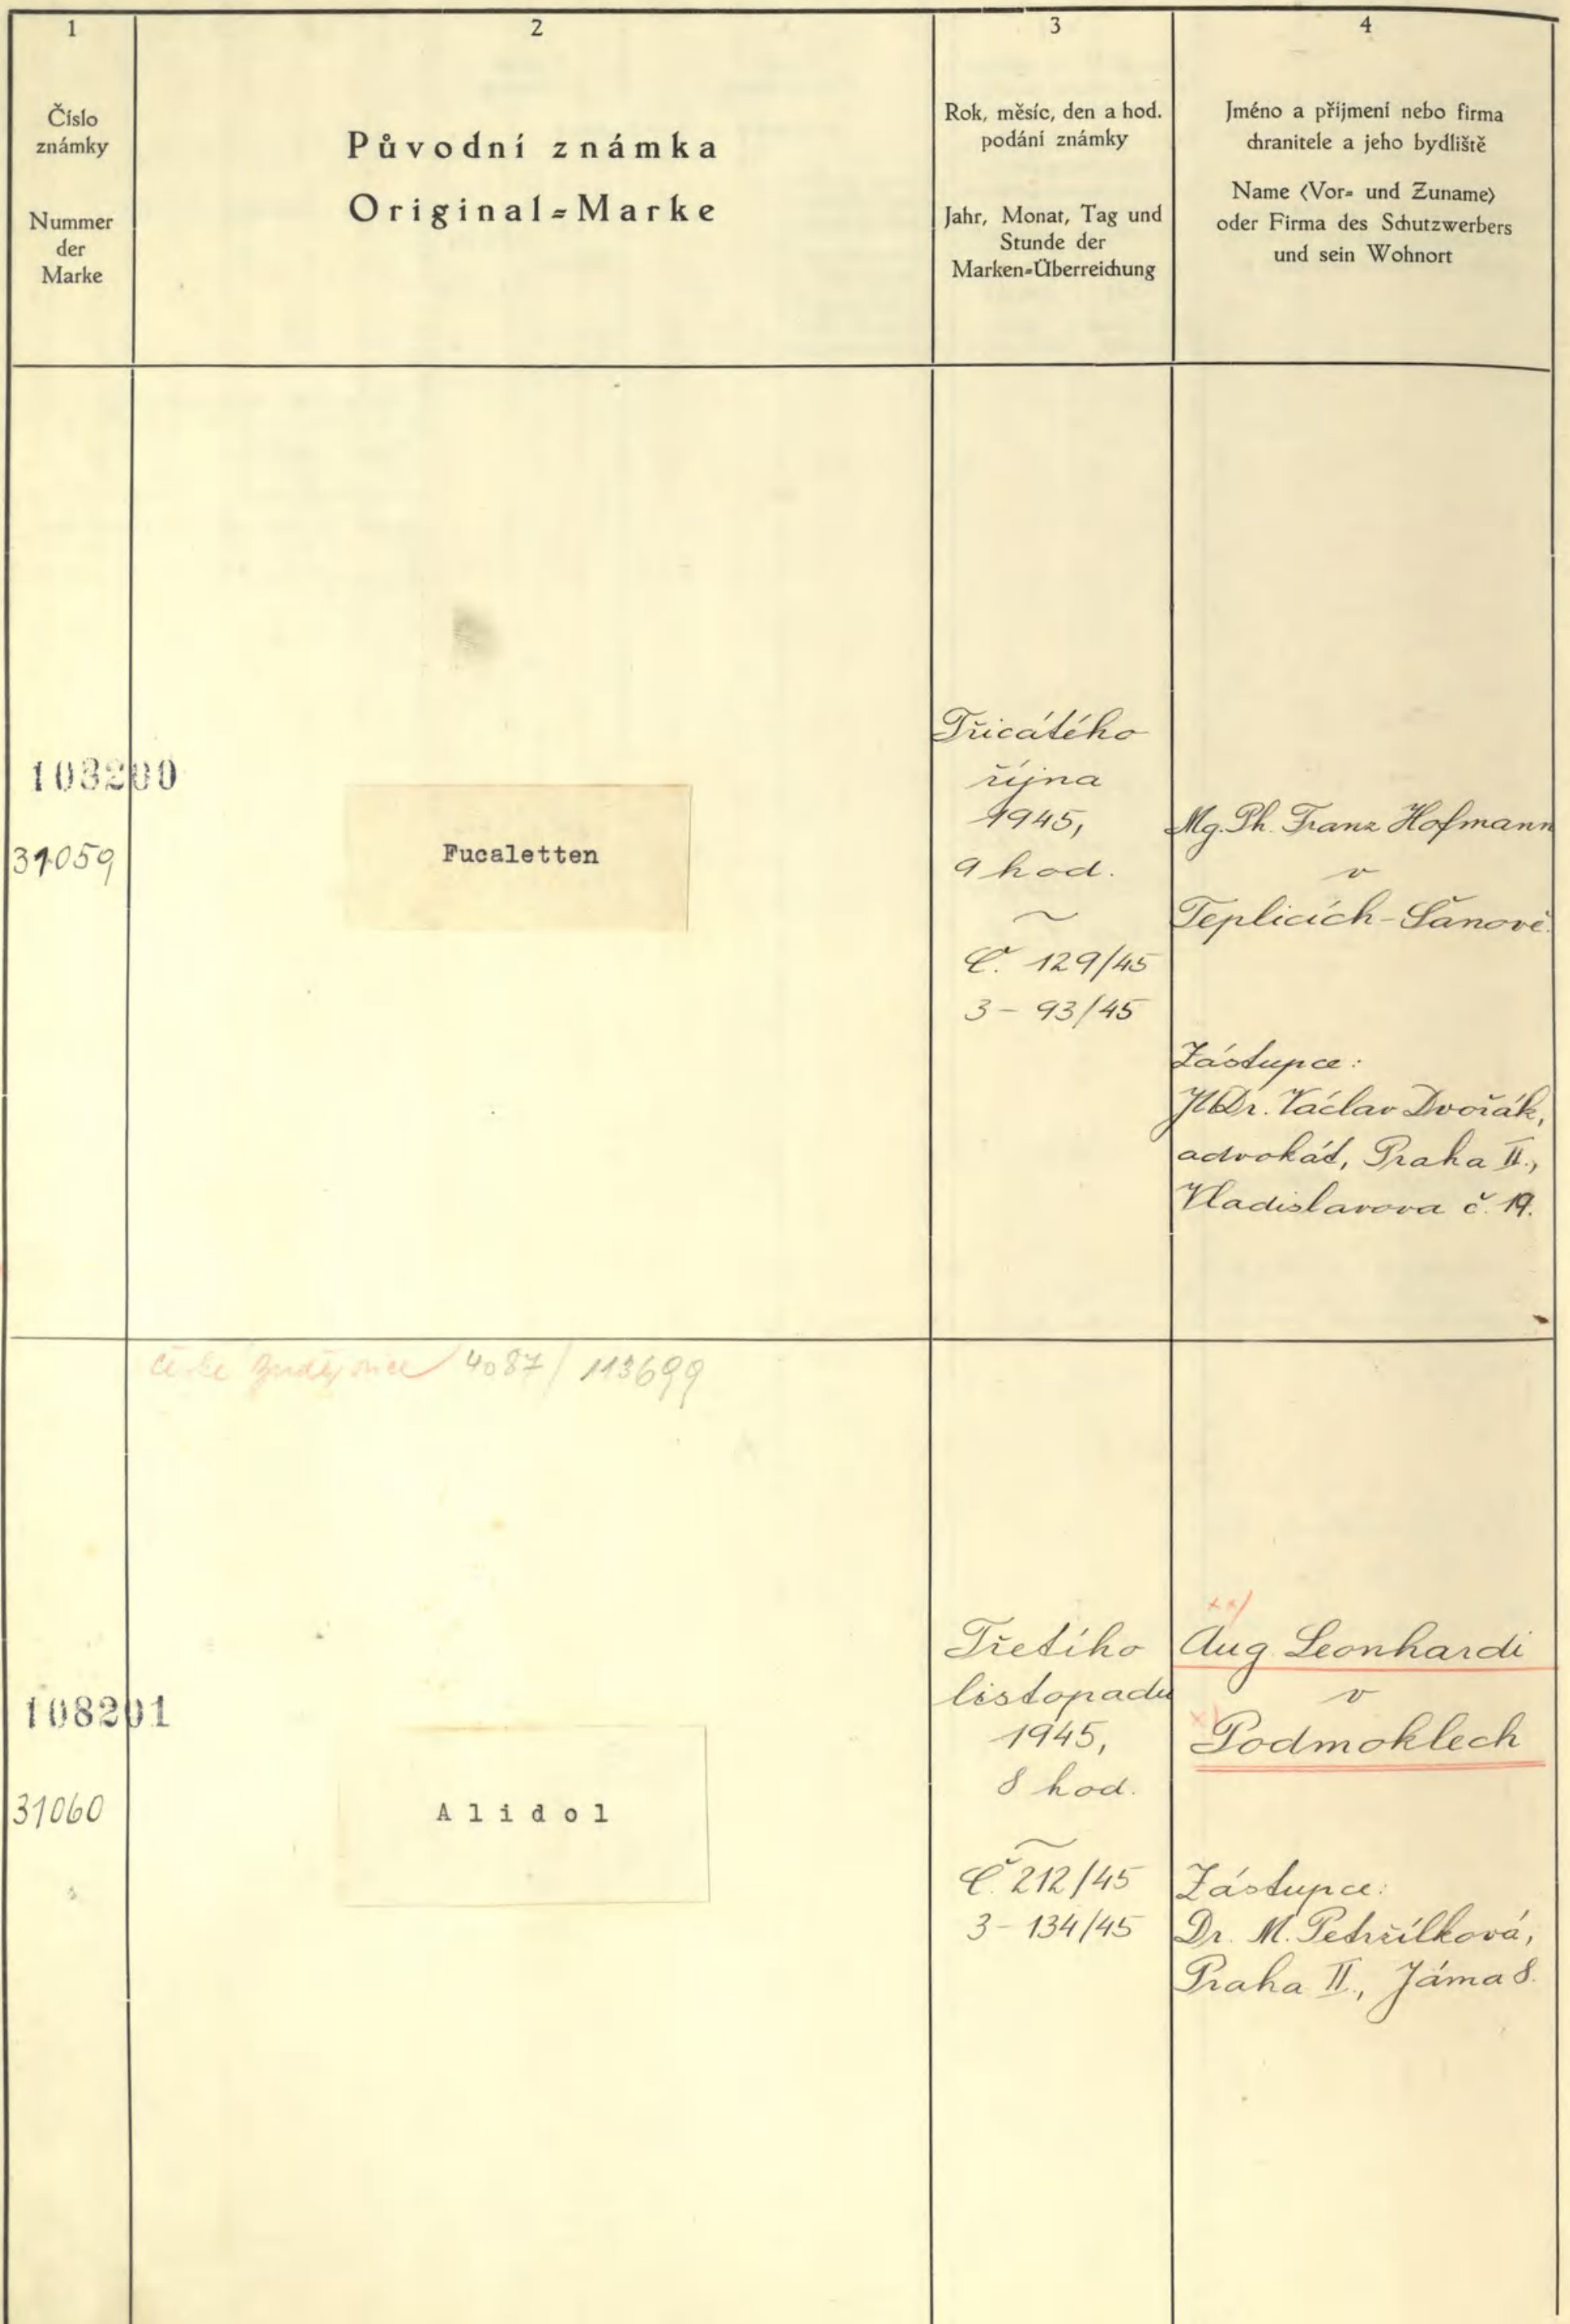 1
2
3
4
Číslo
známky
Nummer
der
Marke
Původní známka
Original-Marke
Rok, měsíc, den a hod.
podání známky
Jahr, Monat, Tag und
Stunde der
Marken-Überreichung
Jméno a příjmení nebo firma
chranitele a jeho bydliště
Name (Vor- und Zuname)
oder Firma des Schutzwerbers
und sein Wohnort
108200
31059
Fucaletten
Třicátého
října
1945,
9 hod.
Č. 129/45
3 - 93/45
Mg. Ph. Franz Hofmann
v
Teplicích-Šanově.
Zástupce:
JUDr. Václav Dvořák,
advokát, Praha II.,
Vladislavova č. 19.
4087/113699
108201
31060
Alidol
Třetího
listopadu
1945,
8 hod.
Č. 212/45
3 - 134/45
xx/
Aug. Leonhardi
v
x)
Podmoklech
Zástupce:
Dr. M. Petržílková,
Praha II., Jáma 8.